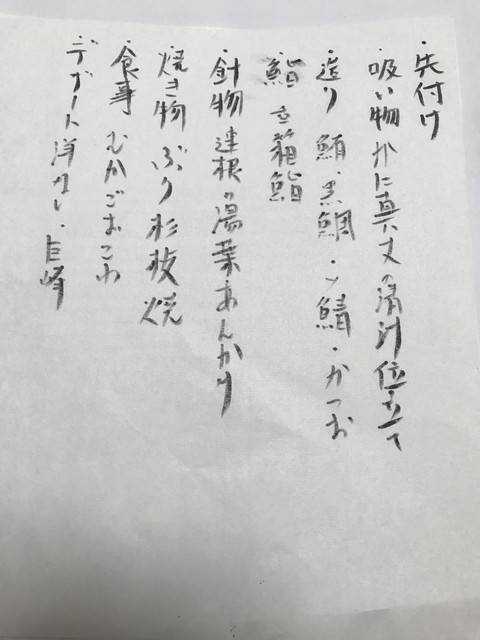 ・先付け
・吸い物かに真丈の清汁仕立て
・造り 鮪・黒鯛・〆鯖・かつお
・鮨 箱鮨
・針物 蓮根の湯葉あんかけ
・焼き物 ぶり杉板焼
・食事 むかごおこわ
・デザート 洋なし・巨峰